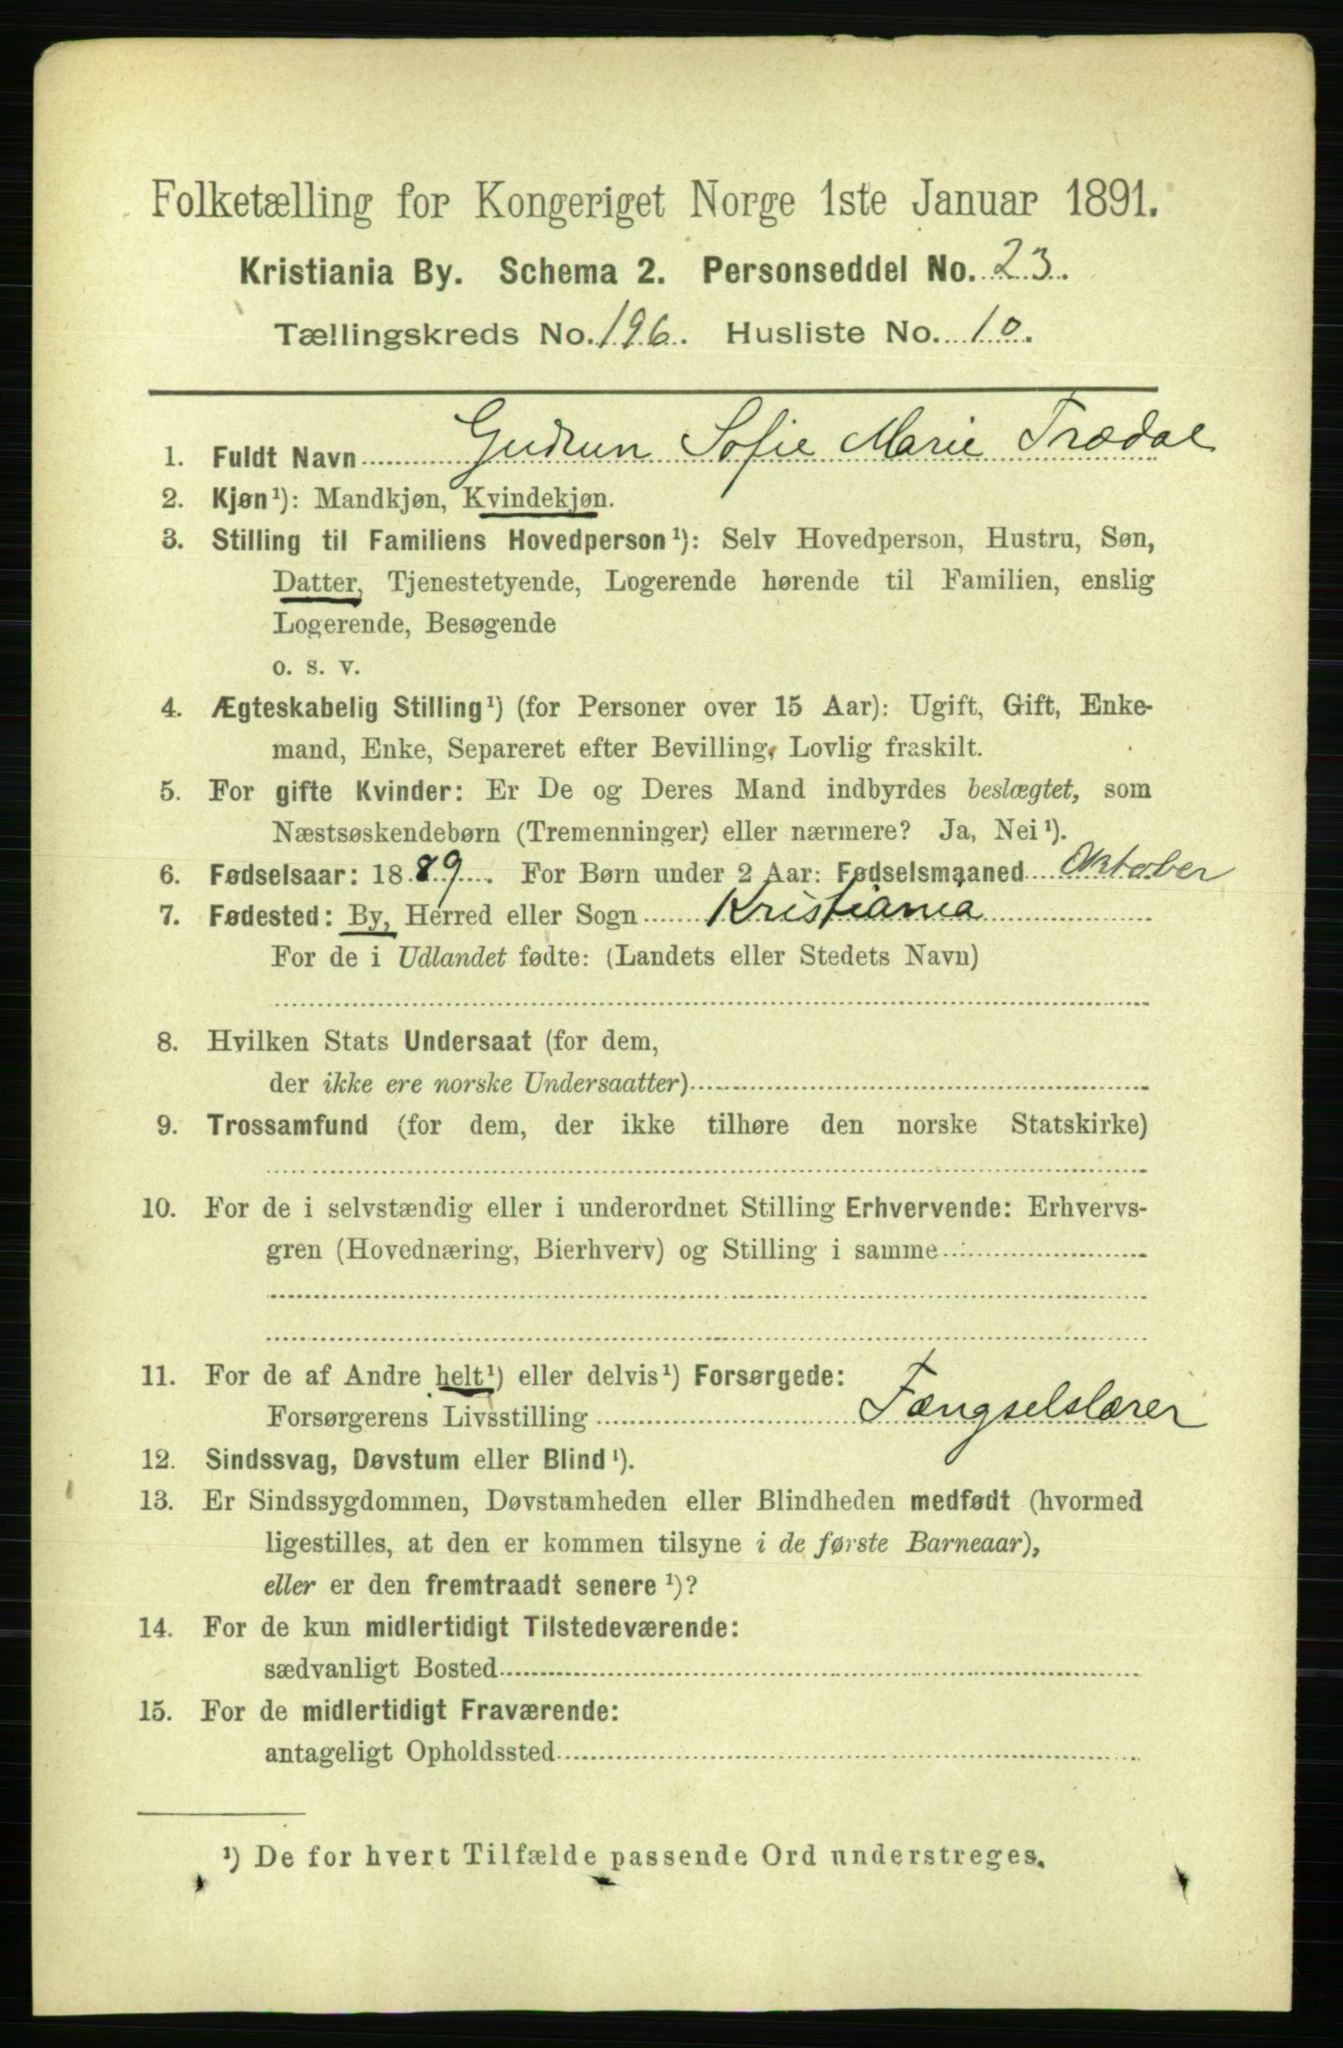 Folketælling for Kongeriget Norge 1ste Januar 1891.
Kristiania By. Schema 2. Personseddel No. 23.
Tællingskreds No. 196. Husliste No. 10.
1. Fuldt Navn Gudrun Sofie Marie Trædal
2. Kjøn¹): Mandkjøn, Kvindekjøn.
3. Stilling til Familiens Hovedperson¹): Selv Hovedperson, Hustru, Søn,
Datter, Tjenestetyende, Logerende hørende til Familien, enslig
Logerende, Besøgende
o. s. v.
4. Ægteskabelig Stilling¹) (for Personer over 15 Aar): Ugift, Gift, Enke-
mand, Enke, Separeret efter Bevilling, Lovlig fraskilt.
5. For gifte Kvinder: Er De og Deres Mand indbyrdes beslægtet, som
Næstsøskendebørn (Tremenninger) eller nærmere? Ja, Nei¹).
6. Fødselsaar: 1889. For Børn under 2 Aar: Fødselsmaaned Oktober
7. Fødested: By, Herred eller Sogn Kristiania
For de i Udlandet fødte: (Landets eller Stedets Navn)
8. Hvilken Stats Undersaat (for dem,
der ikke ere norske Undersaatter)
9. Trossamfund (for dem, der ikke tilhøre den norske Statskirke)
10. For de i selvstændig eller i underordnet Stilling Erhvervende: Erhvervs-
gren (Hovednæring, Bierhverv) og Stilling i samme
11. For de af Andre helt¹) eller delvis¹) Forsørgede:
Forsørgerens Livsstilling Fængselslærer
12. Sindssvag, Døvstum eller Blind¹).
13. Er Sindssygdommen, Døvstumheden eller Blindheden medfødt (hvormed
ligestilles, at den er kommen tilsyne i de første Barneaar),
eller er den fremtraadt senere¹)?
14. For de kun midlertidigt Tilstedeværende:
sædvanligt Bosted
15. For de midlertidigt Fraværende:
antageligt Opholdssted
¹) De for hvert Tilfælde passende Ord understreges.